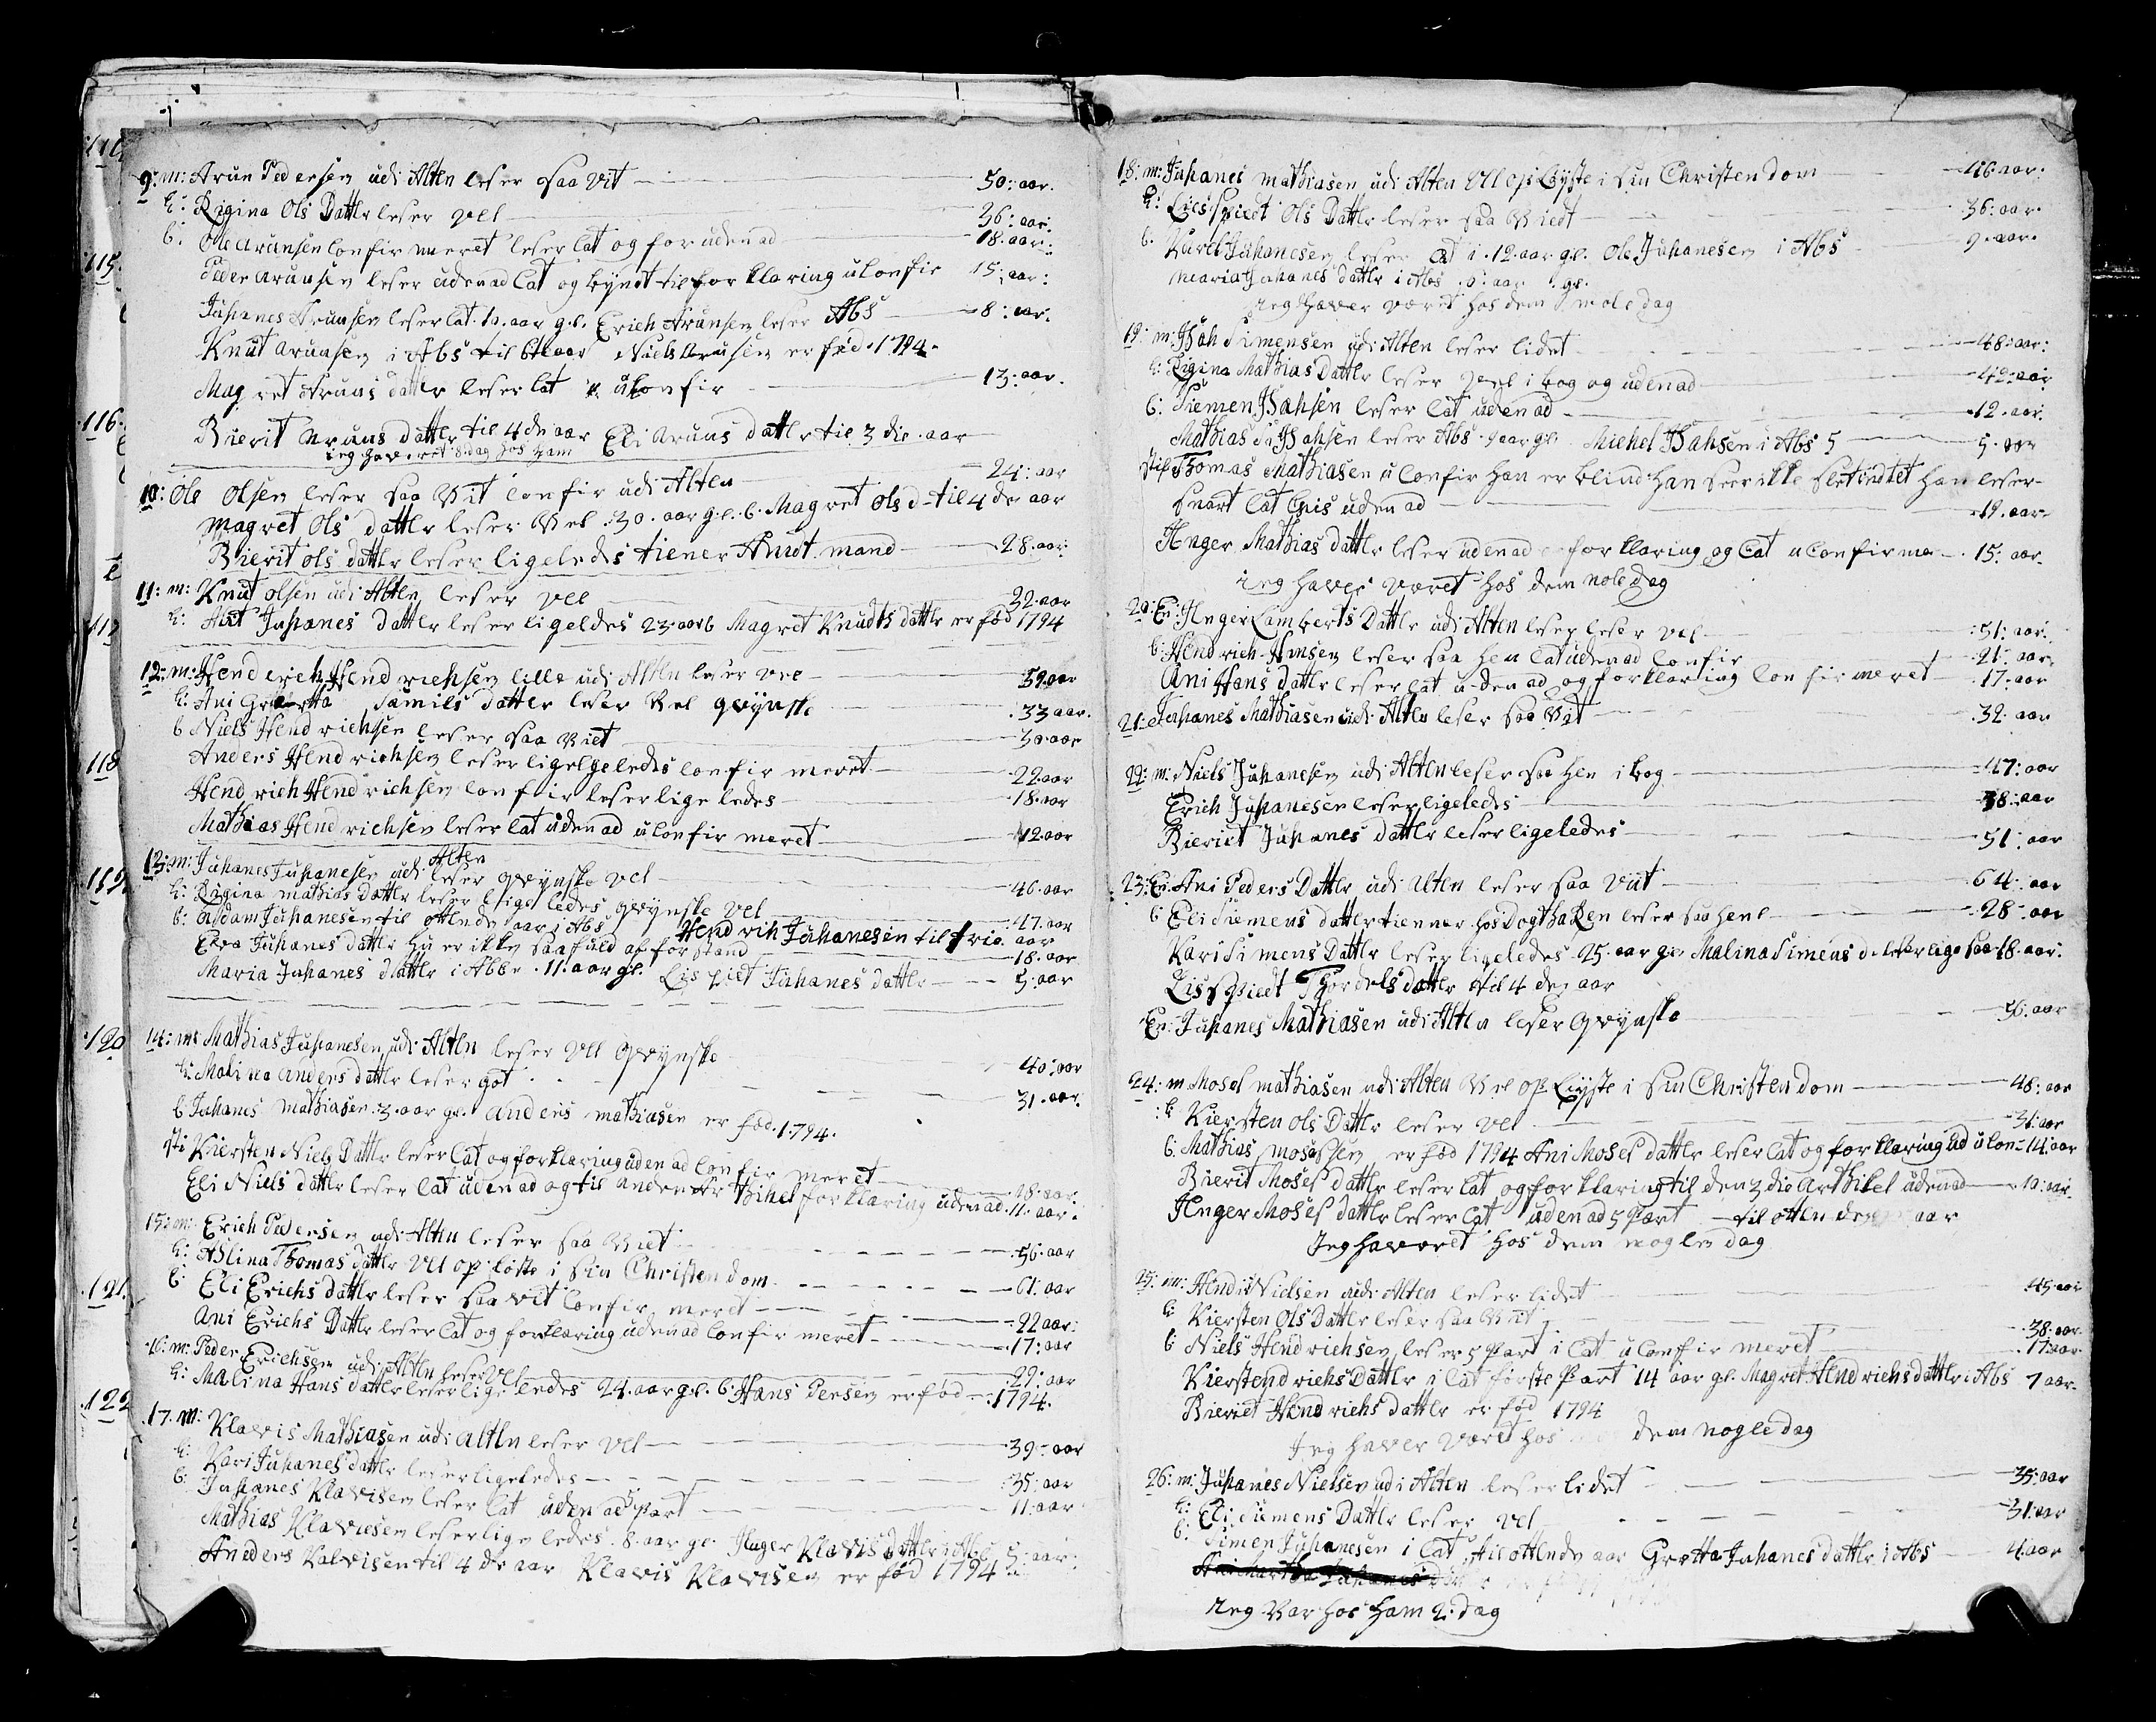 9: m: Arun Pedersen udi Alten leser saa vit 50: aar.
k: Rigina Ols Dattlr leser vel 36: aar.
b: Ole arunsen confirmeret leser Cat og for udenad 18. aar.
Peder arunsen leser udenad Cat og byndt til forklaring uConfir 15: aar:
Juhanes Arunsen leser Cat. 10. aar gl. Erich Arunsen leser Abs 8: aar.
Knut arunsen i Abs til 6te aar Niels Arunsen er fød. 1794.
Mag ret Aruns dattlr leser Cat uConfir 13: aar.
Bierit Aruns dattlr til 4 de aar Eli Aruns dattlr til 3 die. aar
ieg hav. 8. dag hos ham
10: Ole Olsen leser saa Vit Confir udi Alten 24: aar
Magret Ols dattlr leser Vel .30. aar gl. b. Magret Ols d. til 4 de aar
Bierit Ols dattlr leser ligeledes tiener Amdt. mand 28. aar
11: m: Knut Olsen udi Alten leser vel 32. aar
k: Juhanes dattlr leser ligeldes 23. aar b Magret Knudts dattlr er fød 1794
12: m: Henderich Hendrichsen lille udi Alten leser vel 59. aar
k: Ani Gretta Samils datter leser Vel qvynske .33 aar.
b Niels Hendrichsen leser saa Viet 30. aar
Anders Hendrichsen leser ligelgeledes confirmeret 22. aar
Hendrich Hendrichsen confir leser ligeledes 18. aar
Mathias Hendrichsen leser Cat udenad uConfirmeret 12. aar
13: m: Juhanes Juhanesen udi Alten leser qvynske vel 46. aar
k: Rigina mathias Dattlr leser lige ledes qvynske vel 47. aar
b: Adam Juhanesen til ottende aar i Abs Hendrih Juhanesen til trie. aar
Elea Juhanes dattlr hu er ikke saa fuld af forstand 18. aar
Maria Juhanes dattlr i Abbe .11. aar gl. Lis piet Juhanes dattlr 5: aar
14: m: Mathias Juhanesen udi Alten leser vel qvynske 40: aar
k: Malina Anders dattlr leser got 31. aar.
b Juhanes mathiasen .3. aar gl. Anders mathiasen er fød. 1794.
sti Kiersten Niels Dattlr leser Cat og forklaring udenad Confirmeret 18. aar.
Eli Niels dattlr leser Cat udenad og til anden Ar thikel forklaring udenad. 11. aar.
15: m: Erich Pedersen udi Alten leser saa Viet 56. aar
k: Ablina Thomas dattlr vel op løste i sin Christendom 61. aar
b: Eli Erichs Dattlr leser saa vit Confirmeret 22 aar:
Ani Erichs Dattlr leser Cat og forklaring udenad Confirmeret 17: aar
16: m: Peder Erichsen udi Alten leser vel 29: aar
k: Malina Hans dattlr leser lige ledes 24. aar gl. b: Hans Persen er fød 1794.
17. m: Klavis Mathiasen udi Alten leser vel 39. aar
k: Kari Juhanes dattlr leser ligeledes 35: aar
b: Juhanes Klavisen leser Cat udenad 5 Part 11: aar
Mathias Klaviesen leser lige ledes. 8. aar gl. Jnger Klavis dattlr i Abs 5: aar:
Aneders Kalvisen til 4 de aar Klavis Klavisen er fød 1794
18: m: Juhanes mathiasen udi Alten Vel op Lyste i sin Christendom 46. aar:
k: Liesspiedt Ols Dattlr leser saa Viedt 36: aar.
b. Karel Juhanesen leser Cat i .12. aar gl. Ole Juhanesen i Abs 9. aar.
Maria Juhanes dattlr i Abs .6. aar gl.
Jeg Haver været hos dem mole dag
19: m: Isah Simensen udi Alten leser lidet 48: aar:
k: Rigina Mathias Dattlr leser vel i bog og udenad 42. aar
b: Siemen Isahsen leser Cat udenad 12. aar.
Mathias Isahsen leser Abs. 9 aar gl. Michel Isahsen i Abs 5 5. aar
stif Thomas Mathiasen uConfir Han er blind Han seer ikke Slet indtet han leser
snart Cat Cpis udenad 19. aar.
Jnger Mathias dattlr leser udenad forklaring og Cat uConfirme 15: aar.
ieg haver været hos dem nole dag
20: En: Jnger Lamberts Dattlr udi Alten leser leser vel 51: aar.
b: Hendrich Hansen leser saa hen Cat udenad Confir 21. aar.
Ani Hans dattlr leser Cat u-denad og forklaring Confirmeret 17: aar
21: e. Juhanes Mathiasen udi Alten leser saa Vit 32. aar
22: m: Niels Juhanesen udi Alten leser saa Hen i bog 47: aar
Erich Juhanesen leser ligeledes 38: aar
Bieriet Juhanes dattlr leser ligeledes 51: aar
23: En: Ani Peders Dattlr udi Alten leser saa Viit 64: aar
b Eli Siemens dattlr tienner. hos Dogthaken leser saa hene 28: aar
Kari Simens Dattlr leser ligeledes 25. aar gl. Malina Simens d. leser lige saa 18. aar.
Lisspiedt Thordels dattlr til 4 den aar
En: Juhanes Mathiasen udi Alten leser qvynske 56. aar
24: m Moses mathiasen udi Alten Vel op Lyste i sin Christendom 48: aar
k Kiersten Ols Dattlr leser vel 31: aar
b: Mathias mosessen er fød 1794 Ani Moses dattlr leser Cat og forklaring ud uCon= 14. aar
Bierit Moses dattlr leser Cat og forklaring til den 3 die Arthikel udenad 10: aar.
Jnger Moses dattlr leser Cat udenad 5 Part til otten de aar
Jeg haværet Hos dem noglen dag
25: m: Nielsen udi Alten leser lidet 45. aar
k: Kiersten Ols Dattlr leser saa Viit 38: aar.
b: Niels Hendrichsen leser 5 Part i Cat uConfirmeret 17. aar.
Kierstendrichs Dattlr i Cat første Part 14 aar gl. Magret Hendrichs dattlr i Abs 7 aar.
Bieriet Hendrichs dattlr er fød 1794
Jeg haver været hos dem nogle dag
26: m: Juhanes Nielsen udi Alten leser lidet 35: aar
k: Eli Siemens Dattlr leser vel 31: aar
b: Simen Juhanesen i Cat til ottende aar Gretta Juhanes dattlr i Abs 4. aar
Jeg var hos ham 2: dag
115.
116.
117
118
119.
120
121.
122